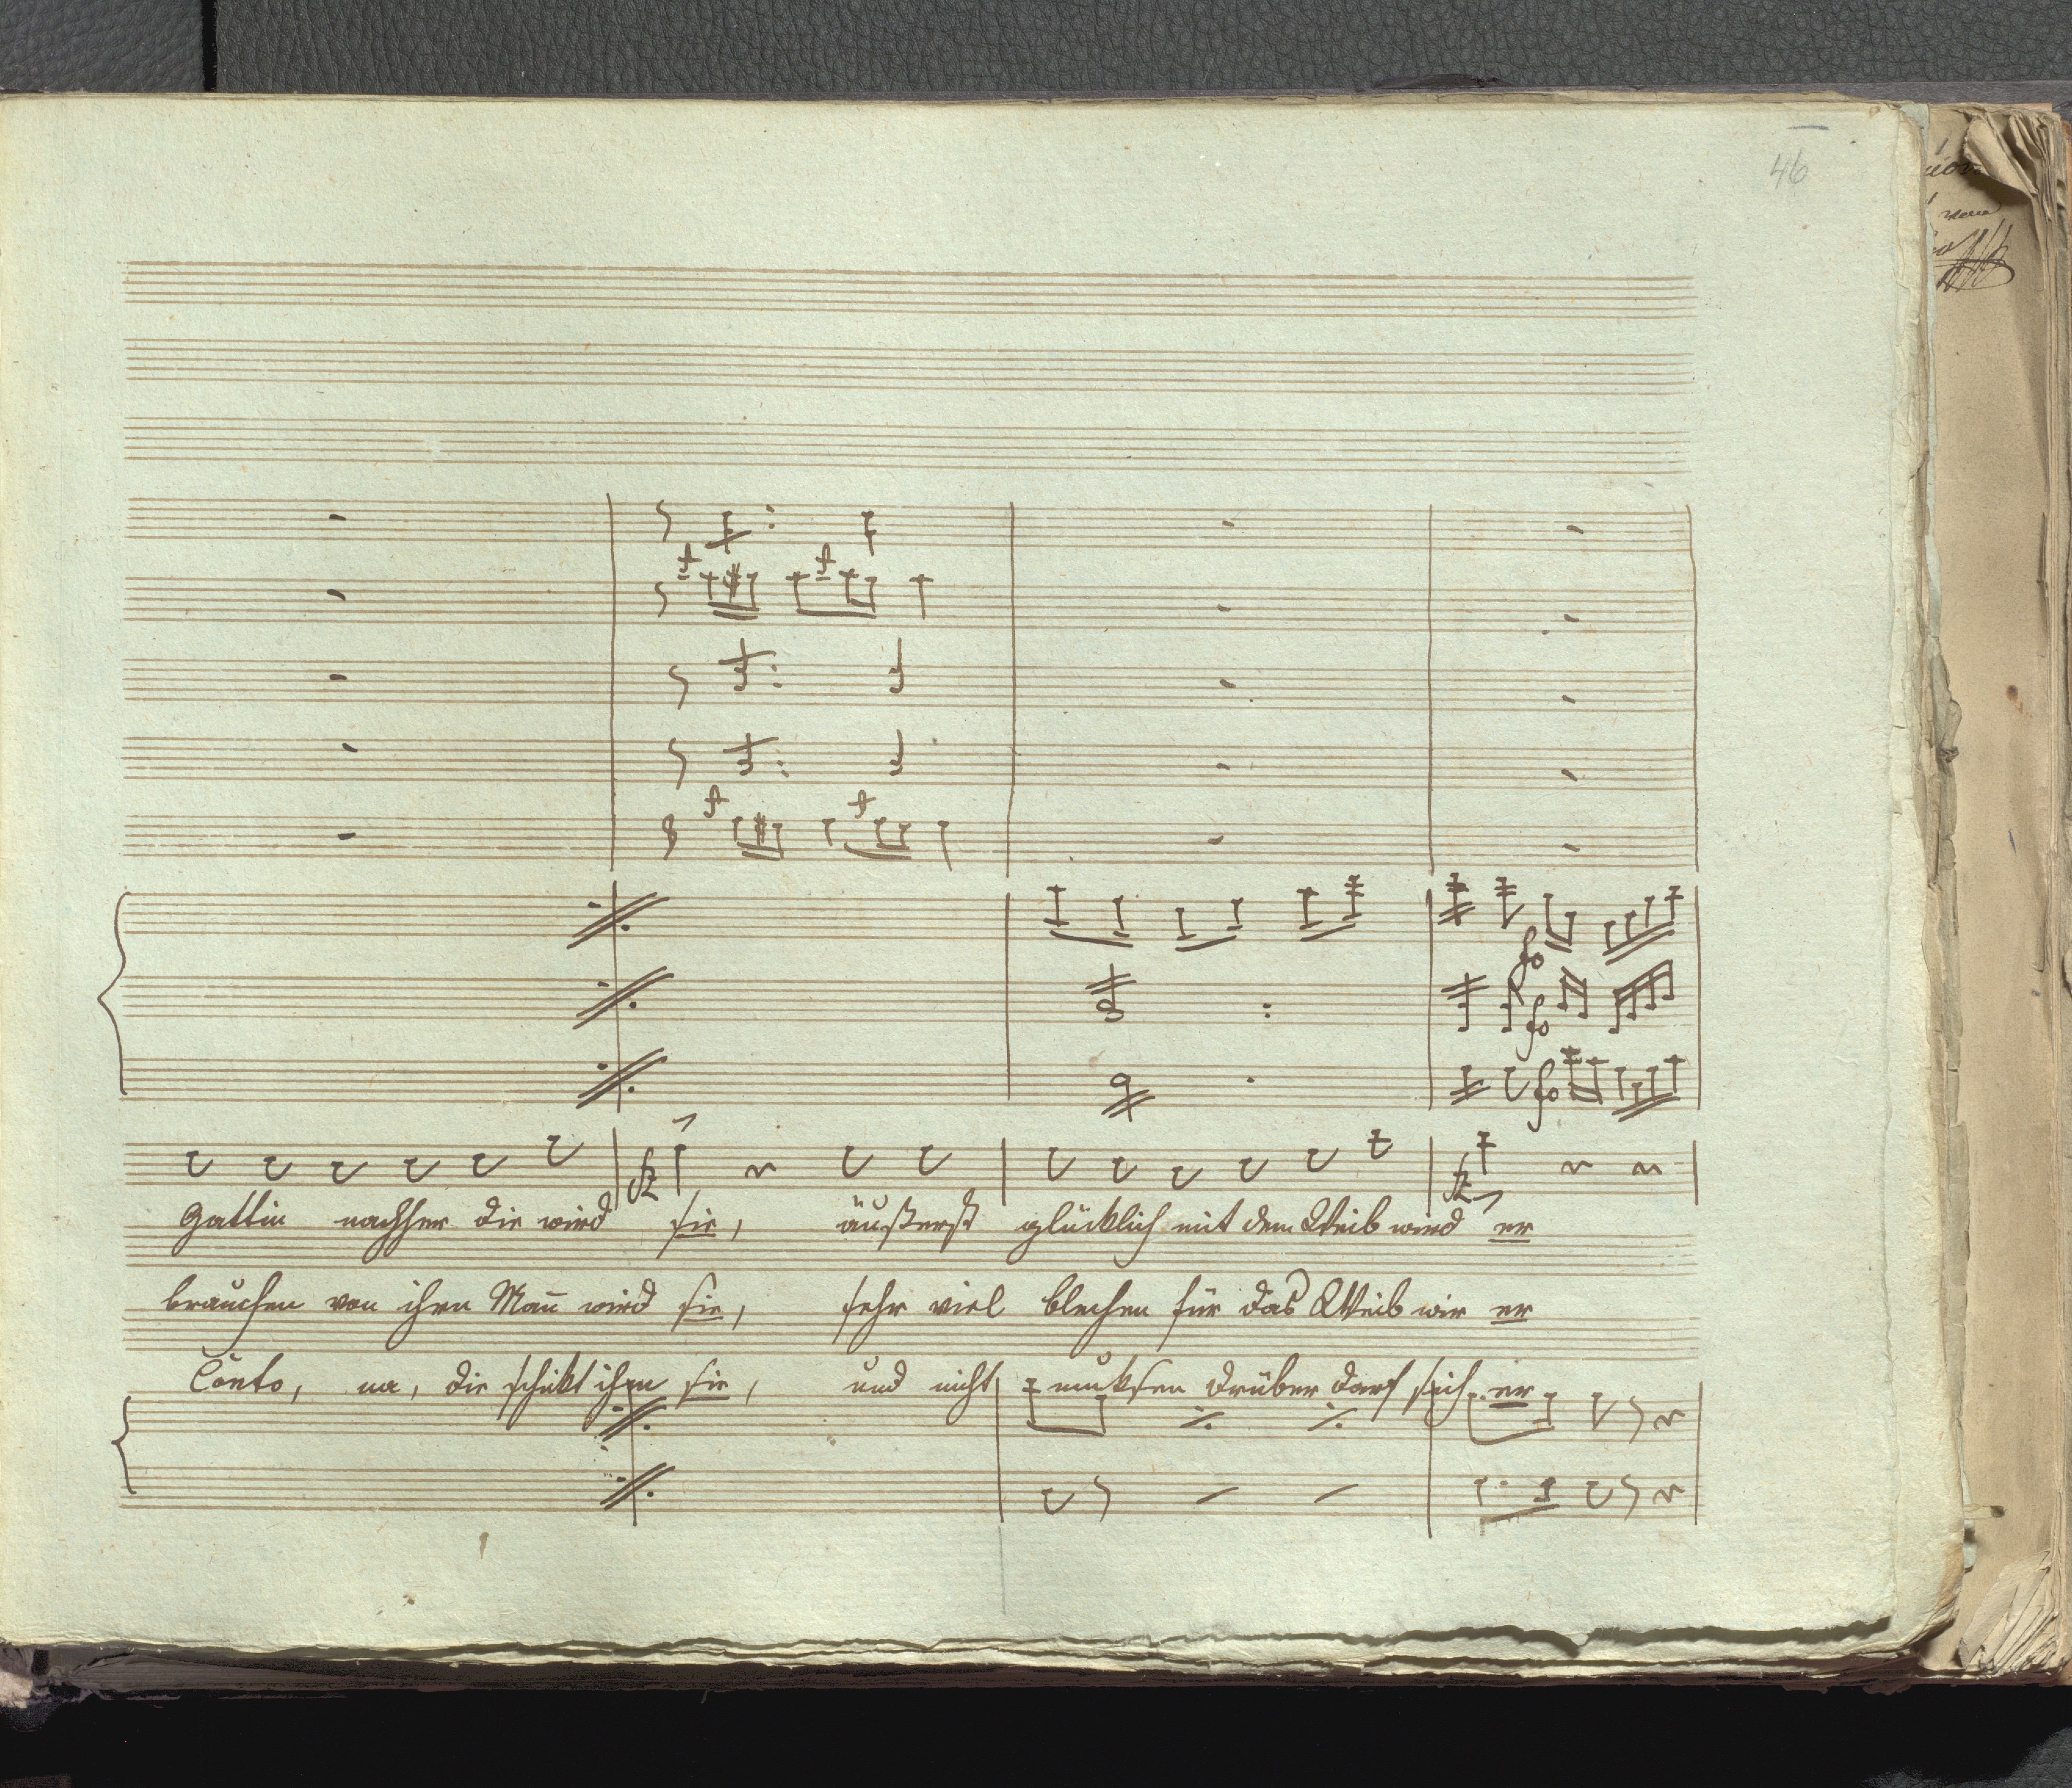 46
fo
fo
fo
fz
fz
Gattin nachher die wird sie, äußerst glücklich mit dem Weib wird er
brauchen von ihren Mañ wird sie, sehr viel blechen für das Weib wir er
Conto, na, die schikt ihm sie, und nicht muksen drüber darf sich er